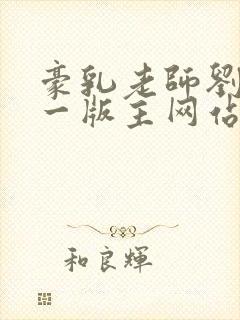 豪乳老師劉
一版主网佔
和良輝